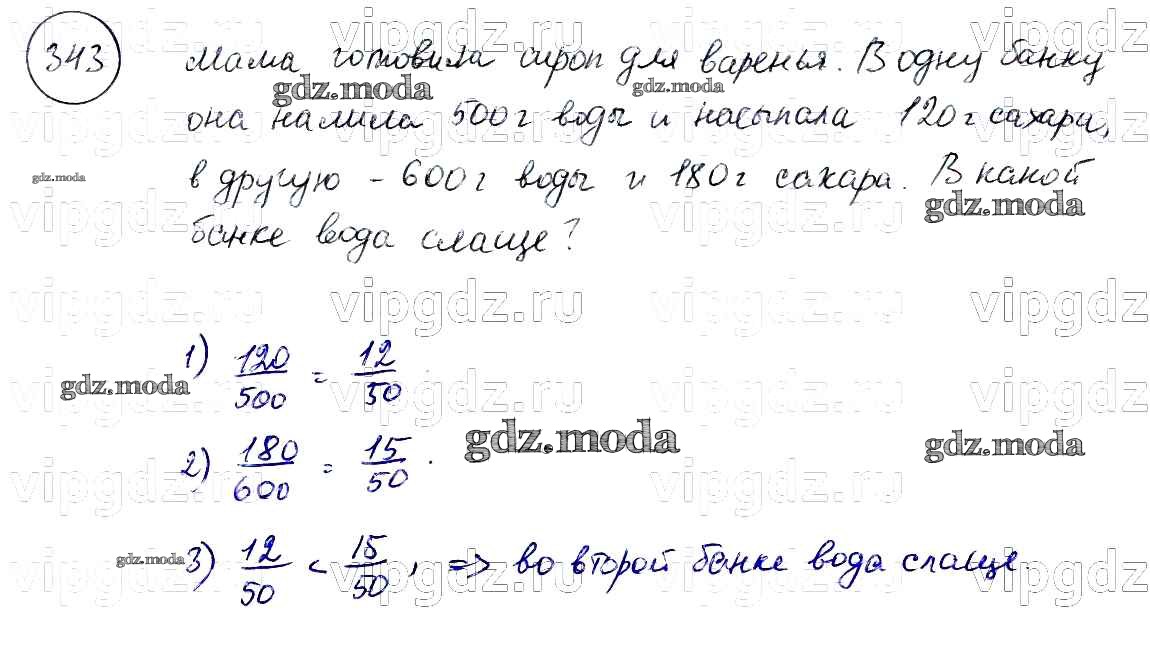 343
Мама готовила сироп для варенья. В одну банку
она налила 500 г воды и насыпала 120 г сахара,
в другую – 600 г воды и 180 г сахара. В какой
банке вода слаще?
1) 120/500 = 12/50
2) 180/600 = 15/50.
3) 12/50 < 15/50, => во второй банке вода слаще.
vipgdz.ru
gdz.moda